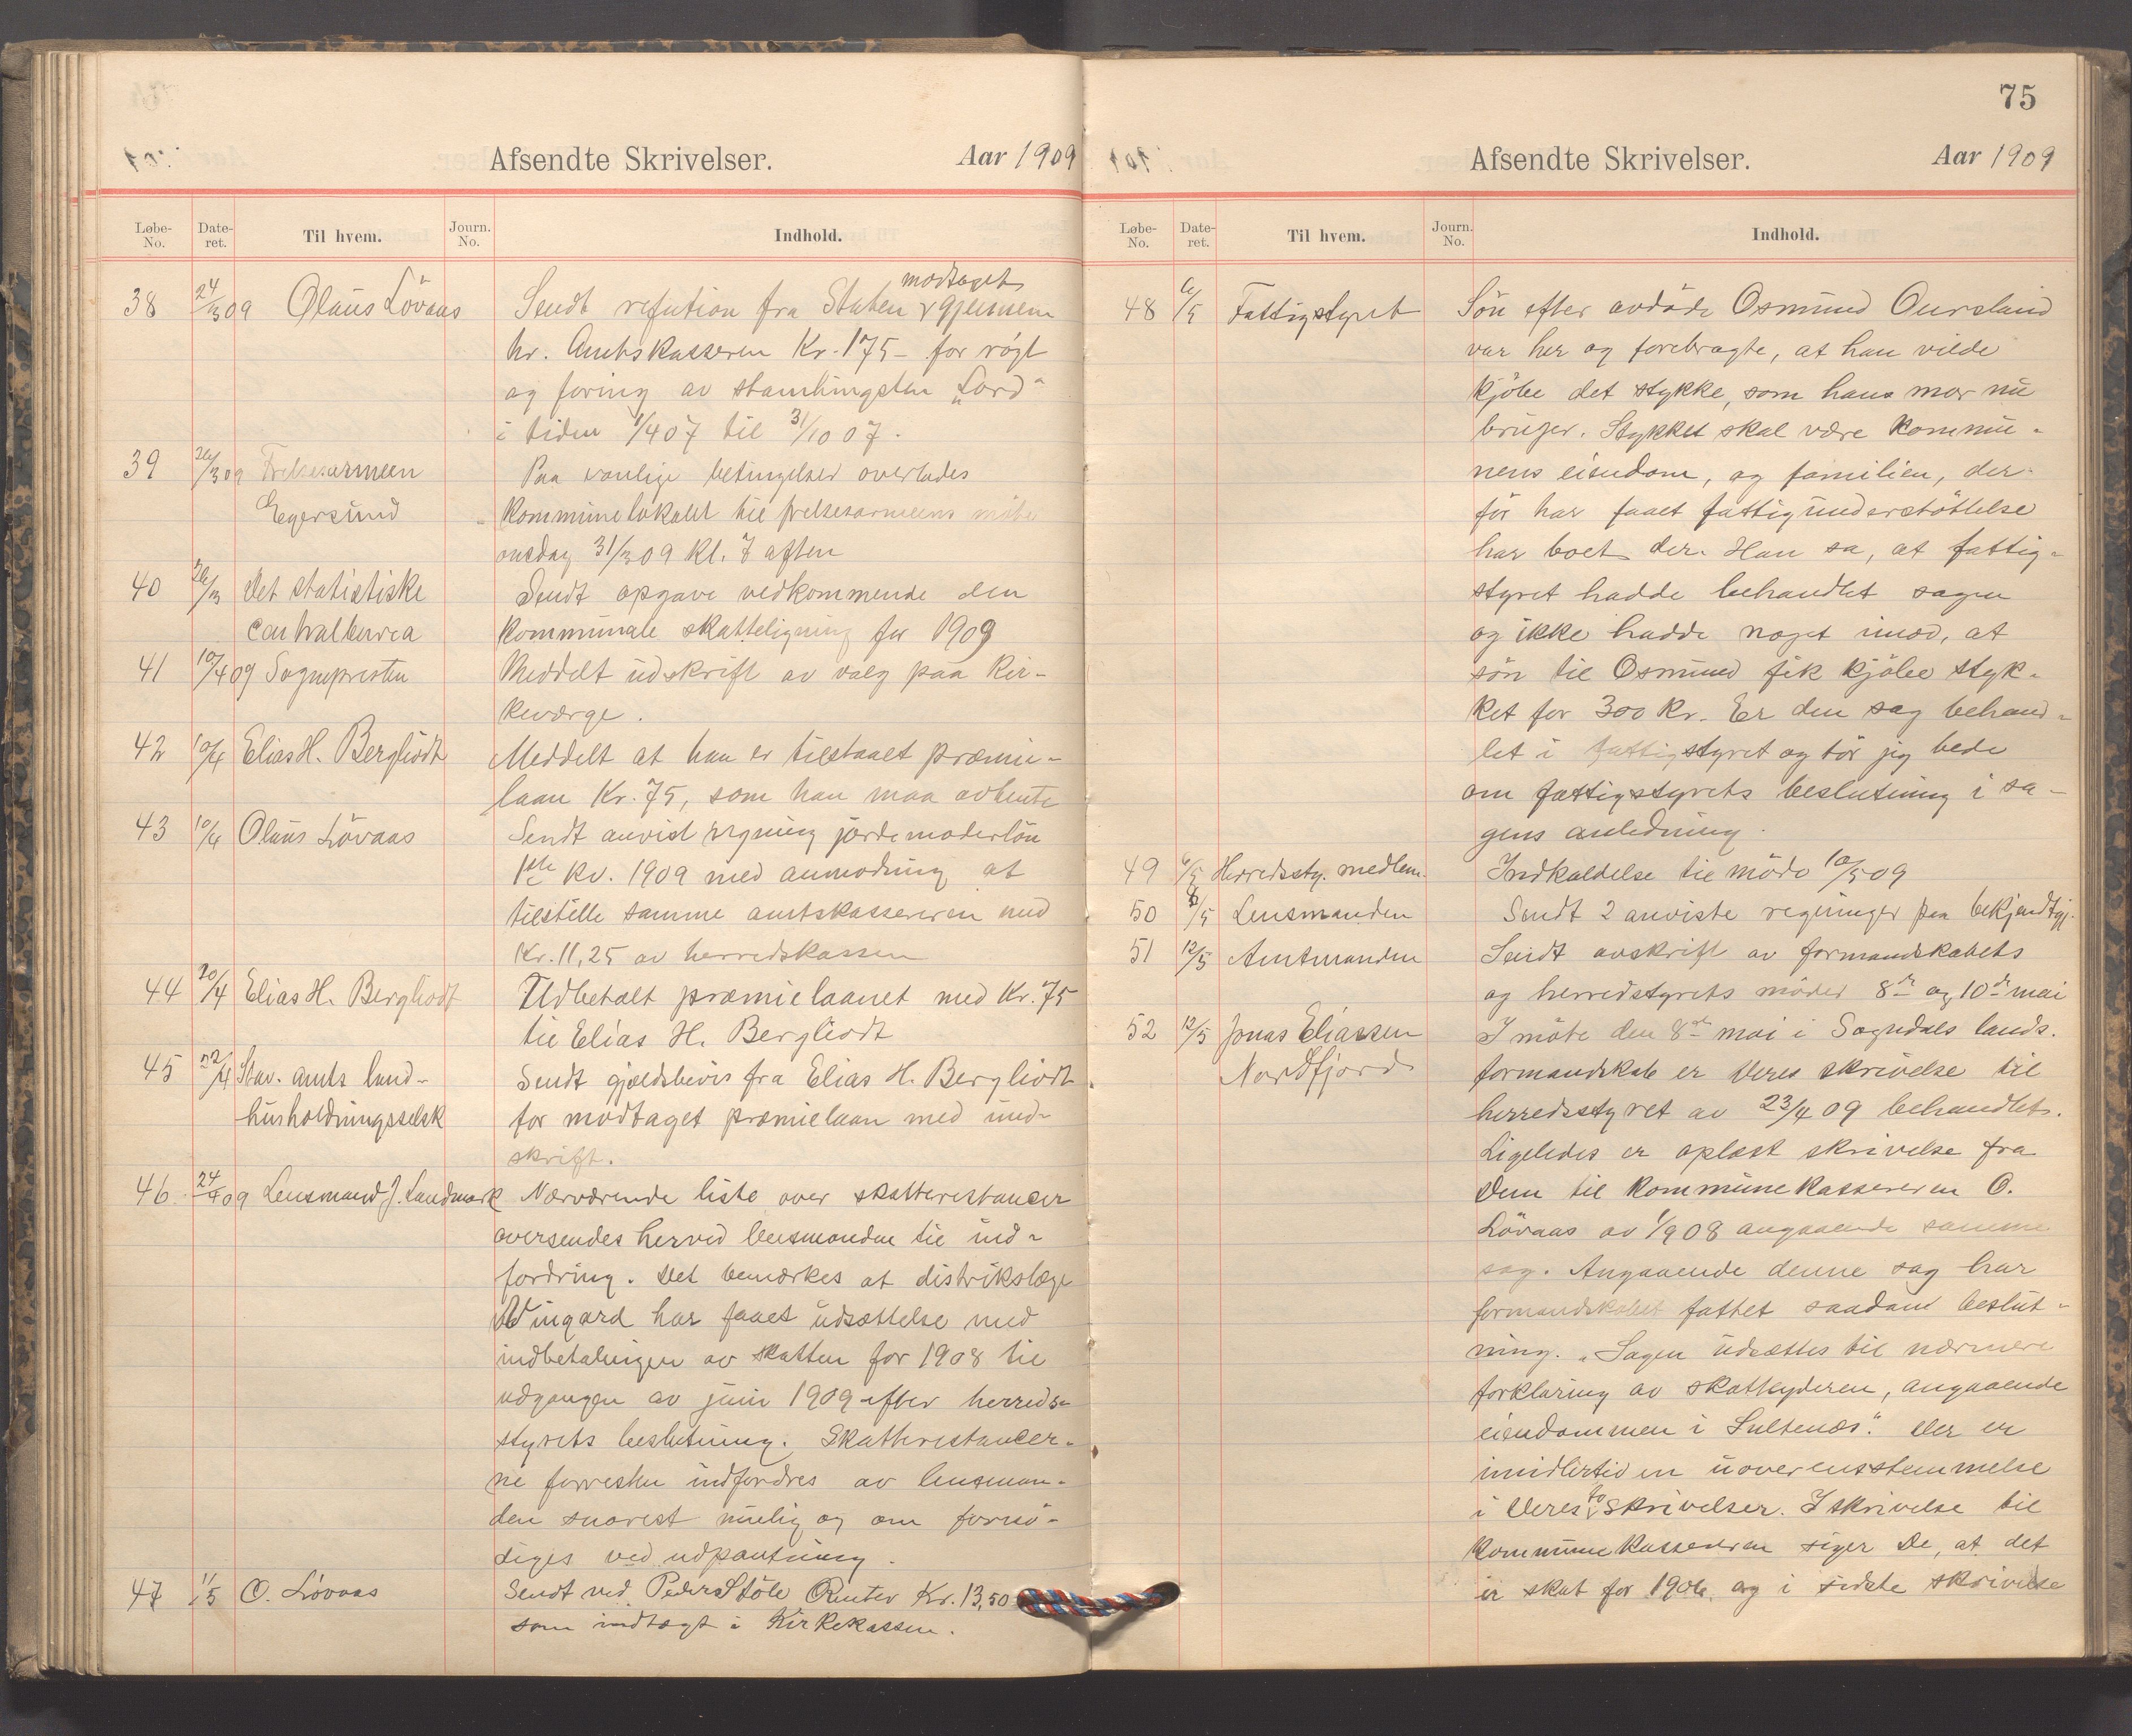 Afsendte Skrivelser. Aar 1909
Løbe-No. Date-ret. Til hvem. Journ. No. Indhold.
38 24/3 09 Olaus Lövaas Sendt refution fra Staten modtaget gjennem
hr. Amtskasseren Kr. 175 - for røgt
og foring av stamhingsten „Lord"
i tiden 1/4 07 til 31/10 07.
39 26/3 09 Frelsesarmeen Paa vanlige betingelser overlades
Egersund kommunelokalet til frelsesarmeens möte
onsdag 31/3 09 Kl. 7 aften
40 26/3 Det statistiske Sendt opgave vedkommende den
centralburea kommunale skatteligning for 1909
41 10/4 09 Sognepresten Meddelt udskrift av valg paa kir-
keværge.
42 10/4 Elias H. Bergliodt Meddelt at han er tilstaaet præmie-
laan Kr. 75, som han maa avhente
43 10/4 Olaus Lövaas Sendt anvist regning jordemoderlön
1ste kv. 1909 med anmodning at
tilstille samme amtskassereren med
Kr. 11,25 av herredskassen
44 20/4 Elias H. Bergliodt Udbetalt præmielaanet med Kr. 75
til Elias H. Bergliodt
45 22/4 Stav. amts land- Sendt gjældsbevis fra Elias H. Bergliodt
husholdningsselsk for modtaget præmielaan med und-
skrift.
46 24/4 09 Lensmand J. Landmark Nærværende liste over skatterestancer
oversendes herved lensmanden til ind-
fordring. Det bemærkes at distrikslæge
Wingard har faaet udsættelse med
indbetalingen av skatten for 1908 til
udgangen av juni 1909 efter herreds-
styrets beslutning. Skatterestancer-
ne forresten indfordres av lensman-
den snarest mulig og om fornö-
diges ved udpantning.
47 1/5 O. Lövaas Sendt ved Peder Stöle Renter Kr. 13,50
som indtægt i Kirkekassen.
75
Afsendte Skrivelser. Aar 1909
Løbe-No. Date-ret. Til hvem. Journ. No. Indhold.
48 6/5 Fattigstyret Sön efter avdöde Osmund Oursland
var her og forebragte, at han vilde
kjöbe det stykke, som hans mor nu
bruger. Stykket skal være kommu-
nens eiendom, og familien, der
för har faaet fattigunderstöttelse
har boet der. Han sa, at fattig-
styret hadde behandlet sagen
og ikke hadde noget imod, at
sön til Osmund fik kjöbe styk-
ket for 300 Kr. Er den sag behand-
let i fattigstyret og tör jeg bede
om fattigstyrets beslutning i sa-
gens anledning.
49 6/5 Herredssty. medlem. Indkaldelse til möde 10/5 09
50 8/5 Lensmanden Sendt 2 anviste regninger paa bekjendtgj.
51 12/5 Amtmanden Sendt avskrift av formandskabets
og herredstyrets möder 8de og 10de mai
52 12/5 Jonas Eliassen I möte den 8de mai i Sogndals lands.
Nordfjord formandskab er Deres skrivelse til
herredsstyret av 23/4 09 behandlet.
Ligeledes er oplæst skrivelse fra
Dem til kommunekassereren O.
Lövaas av 1/9 08 angaaende samme
sag. Angaaende denne sag har
formandskabet fattet saadan beslut-
ning. „Sagen udsættes til nærmere
forklaring av skatteyderen, angaaende
eiendommen i Sultenæs." Der er
imidlertid en uoverensstemmelse
i Deres to skrivelser. I skrivelse til
kommunekassereren siger De, at det
er skat for 1906. og i sidste skrivelse